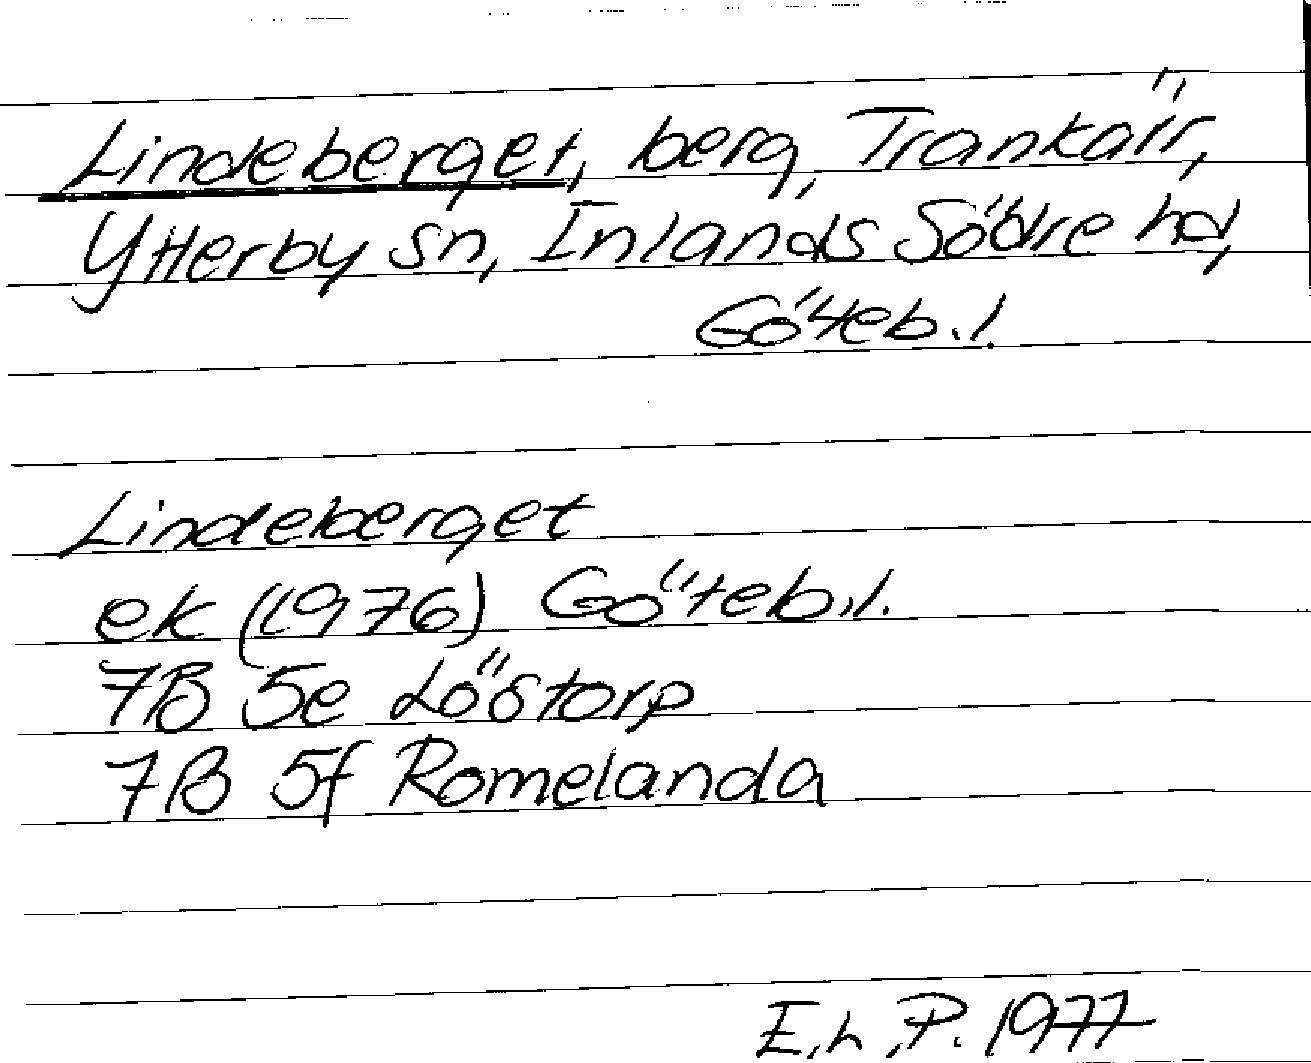 Lindeberget, berg, Trankärr,
Ytterby sn, Inlands Södre hd,
Göteb.l.
Lindeberget
ek (1976) Göteb.l.
7B 5e Löstorp
7B 5f Romelanda
E.h.P. 1977